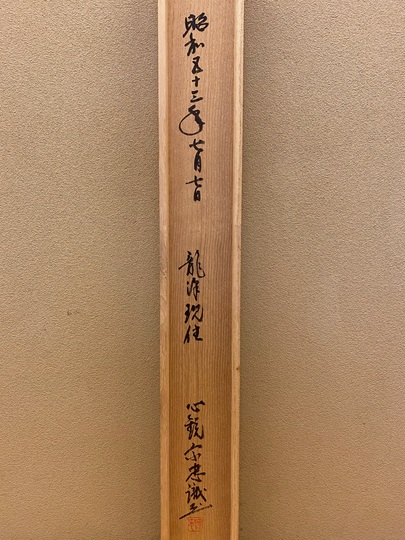 昭和五十三年七月七日
龍澤現住
心鏡宗忠識